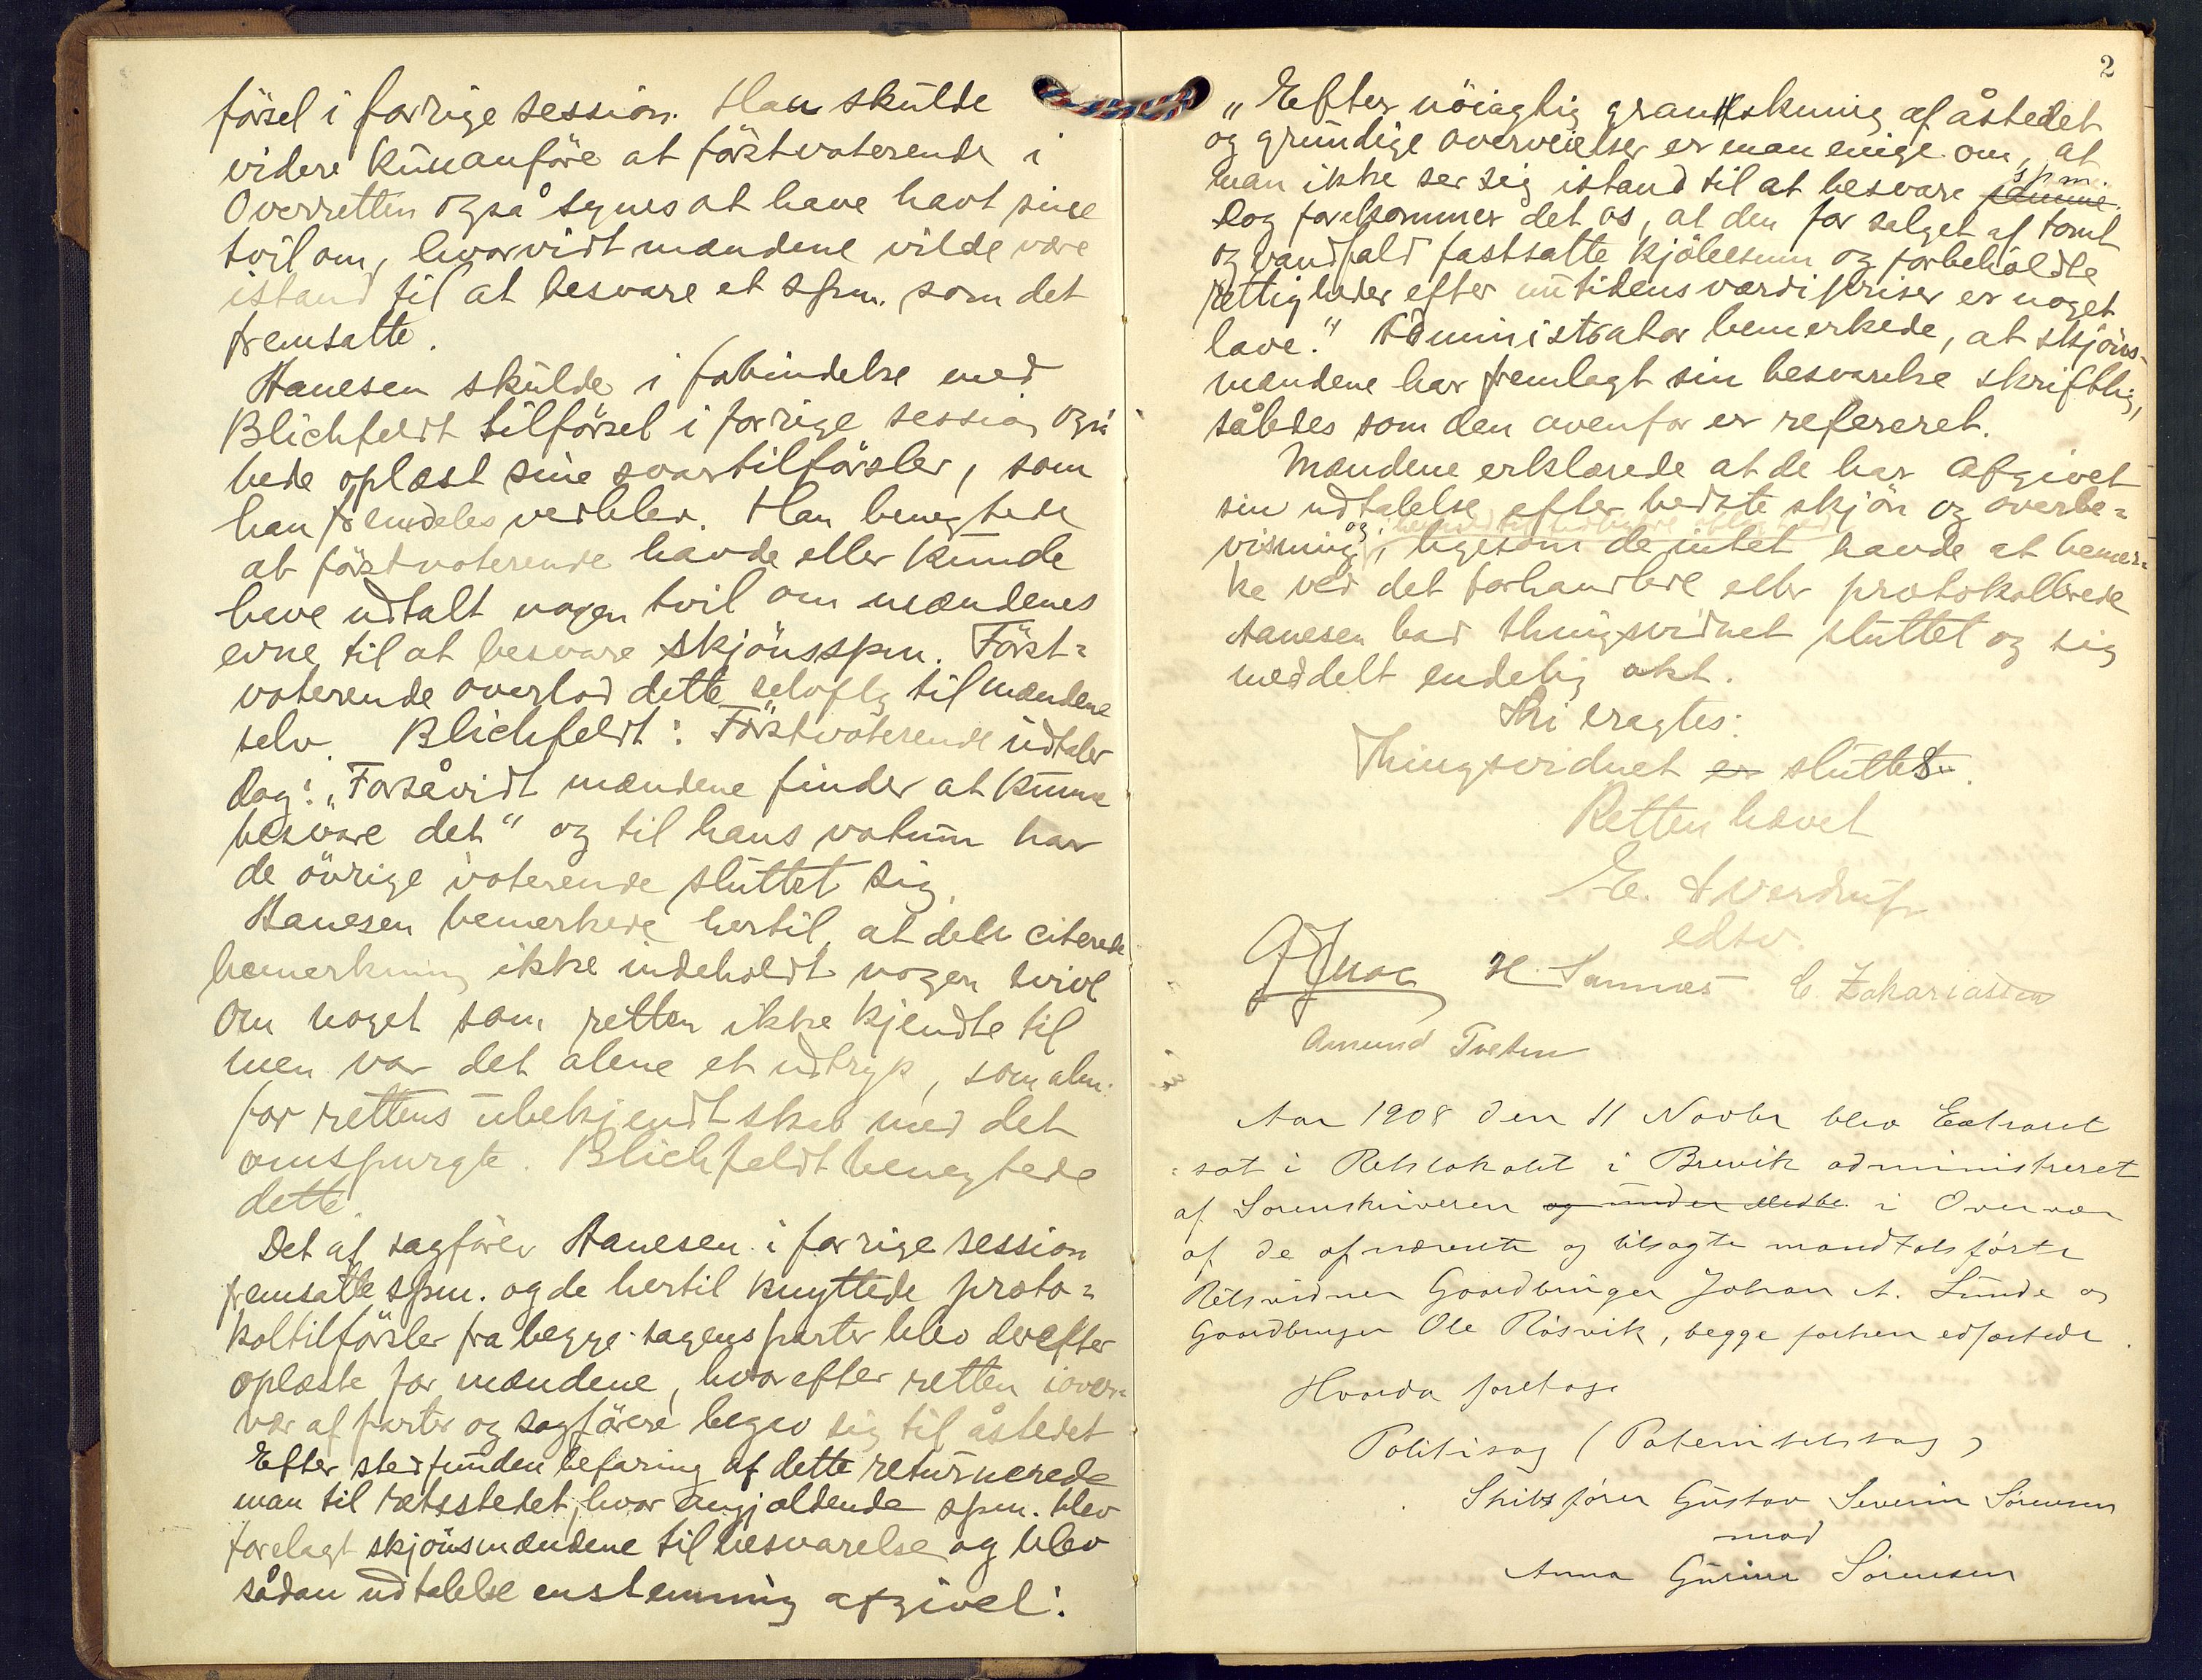 försel i forrige session. Han skulde
videre kun anföre at förstvoterende i
Overretten også synes at have havt sine
tvil om, hvorvidt mændene vilde være
istand til at besvare et spm. som det
fremsatte.
Hanesen skulde i forbindelse med
Blichfeldt tilförsel i forrige session også
bede oplæst sine svartilförsler, som
han fremdeles vedblev. Han benegtede
at förstvoterende havde eller kunde
have udtalt nogen tvil om mændenes
evne til at besvare skjönsspm. Först=
voterende overlod dette selvflg til mændene
selv. Blichfeldt: Förstvoterende udtaler
dog: „Forsåvidt mændene finder at kunne
besvare det" og til hans votum har
de övrige voterende sluttet sig.
Hanesen bemerkede hertil, at den citerede
bemerkning ikke indeholdt nogen tvivl
om noget som retten ikke kjendte til
men var det alene et udtryk, som alm.
for rettens ubekjendtskab med det
omspurgte. Blichfeldt benegtede
dette.
Det af sagförer Hanesen i forrige session
fremsatte spm. og de hertil knyttede proto=
koltilförsler fra begge sagens parter blev derefter
oplæste for mændene, hvorefter retten iover=
vær af parter og sagförere begav sig til åstedet
Efter stedfunden befaring af dette returnerede
man til retsstedet, hvor angjældende spm. blev
forelagt skjönsmændene til besvarelse og blev
sådan udtalelse enstemmig afgivet:
2
„Efter nöiagtig granskning af åstedet
og grundige overveielser er man enige om, at
man ikke ser sig istand til at besvare samme spm.
Dog forekommer det os, at den for salget af tomt
og vandfald fastsatte kjöbesum og forbeholdte
rettigheder efter nutidens værdipriser er noget
lave." Administrator bemerkede, at skjöns-
mændene har fremlagt sin besvarelse skriftlig,
således som den ovenfor er refereret.
Mændene erklærede at de har afgivet
sin udtalelse efter bedste skjön og overbe=
visning, og ligesom de intet havde at bemer=
ke ved det forhandlede eller protokollerede
Hanesen bad thingsvidnet sluttet og sig
meddelt endelig akt.
Thi eragtes:
Thingsvidnet er sluttes.
Retten hævet
E. Sverdrup
edsv.
H. Sannæs C Zakariassen
Amund Tveten
Aar 1908 den 11 Novbr blev Extraret
sat i Retslokalet i Brevik administreret
af Sorenskriveren og under Medbe i Overvær
af de opnævnte og tilsagte mandtalsførte
Retsvidner Gaardbruger Johan A. Lunde og
Gaardbruger Ole Røsvik, begge forhen edfæstede.
Hvorda foretoges
Politisag (Paternitetssag)
Skibsfører Gustav Severin Sørensen
mod
Anna Gurine Sørensen